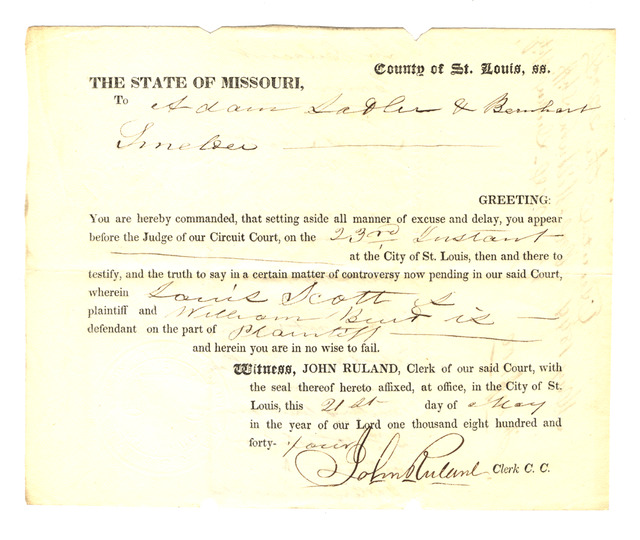 County of St. Louis, ss.
THE STATE OF MISSOURI,
To Adam Sadler & Bernhart
Smelser
GREETING:
You are hereby commanded, that setting aside all manner of excuse and delay, you appear
before the Judge of our Circuit Court, on the 23rd Instant
at the City of St. Louis, then and there to
testify, and the truth to say in a certain matter of controversy now pending in our said Court,
wherein Louis Scott is
plaintiff and William Burd is
defendant on the part of Plaintiff
and herein you are in no wise to fail.
Witness, JOHN RULAND, Clerk of our said Court, with
the seal thereof hereto affixed, at office, in the City of St.
Louis, this 21st day of May
in the year of our Lord one thousand eight hundred and
forty-four
John Ruland Clerk C. C.